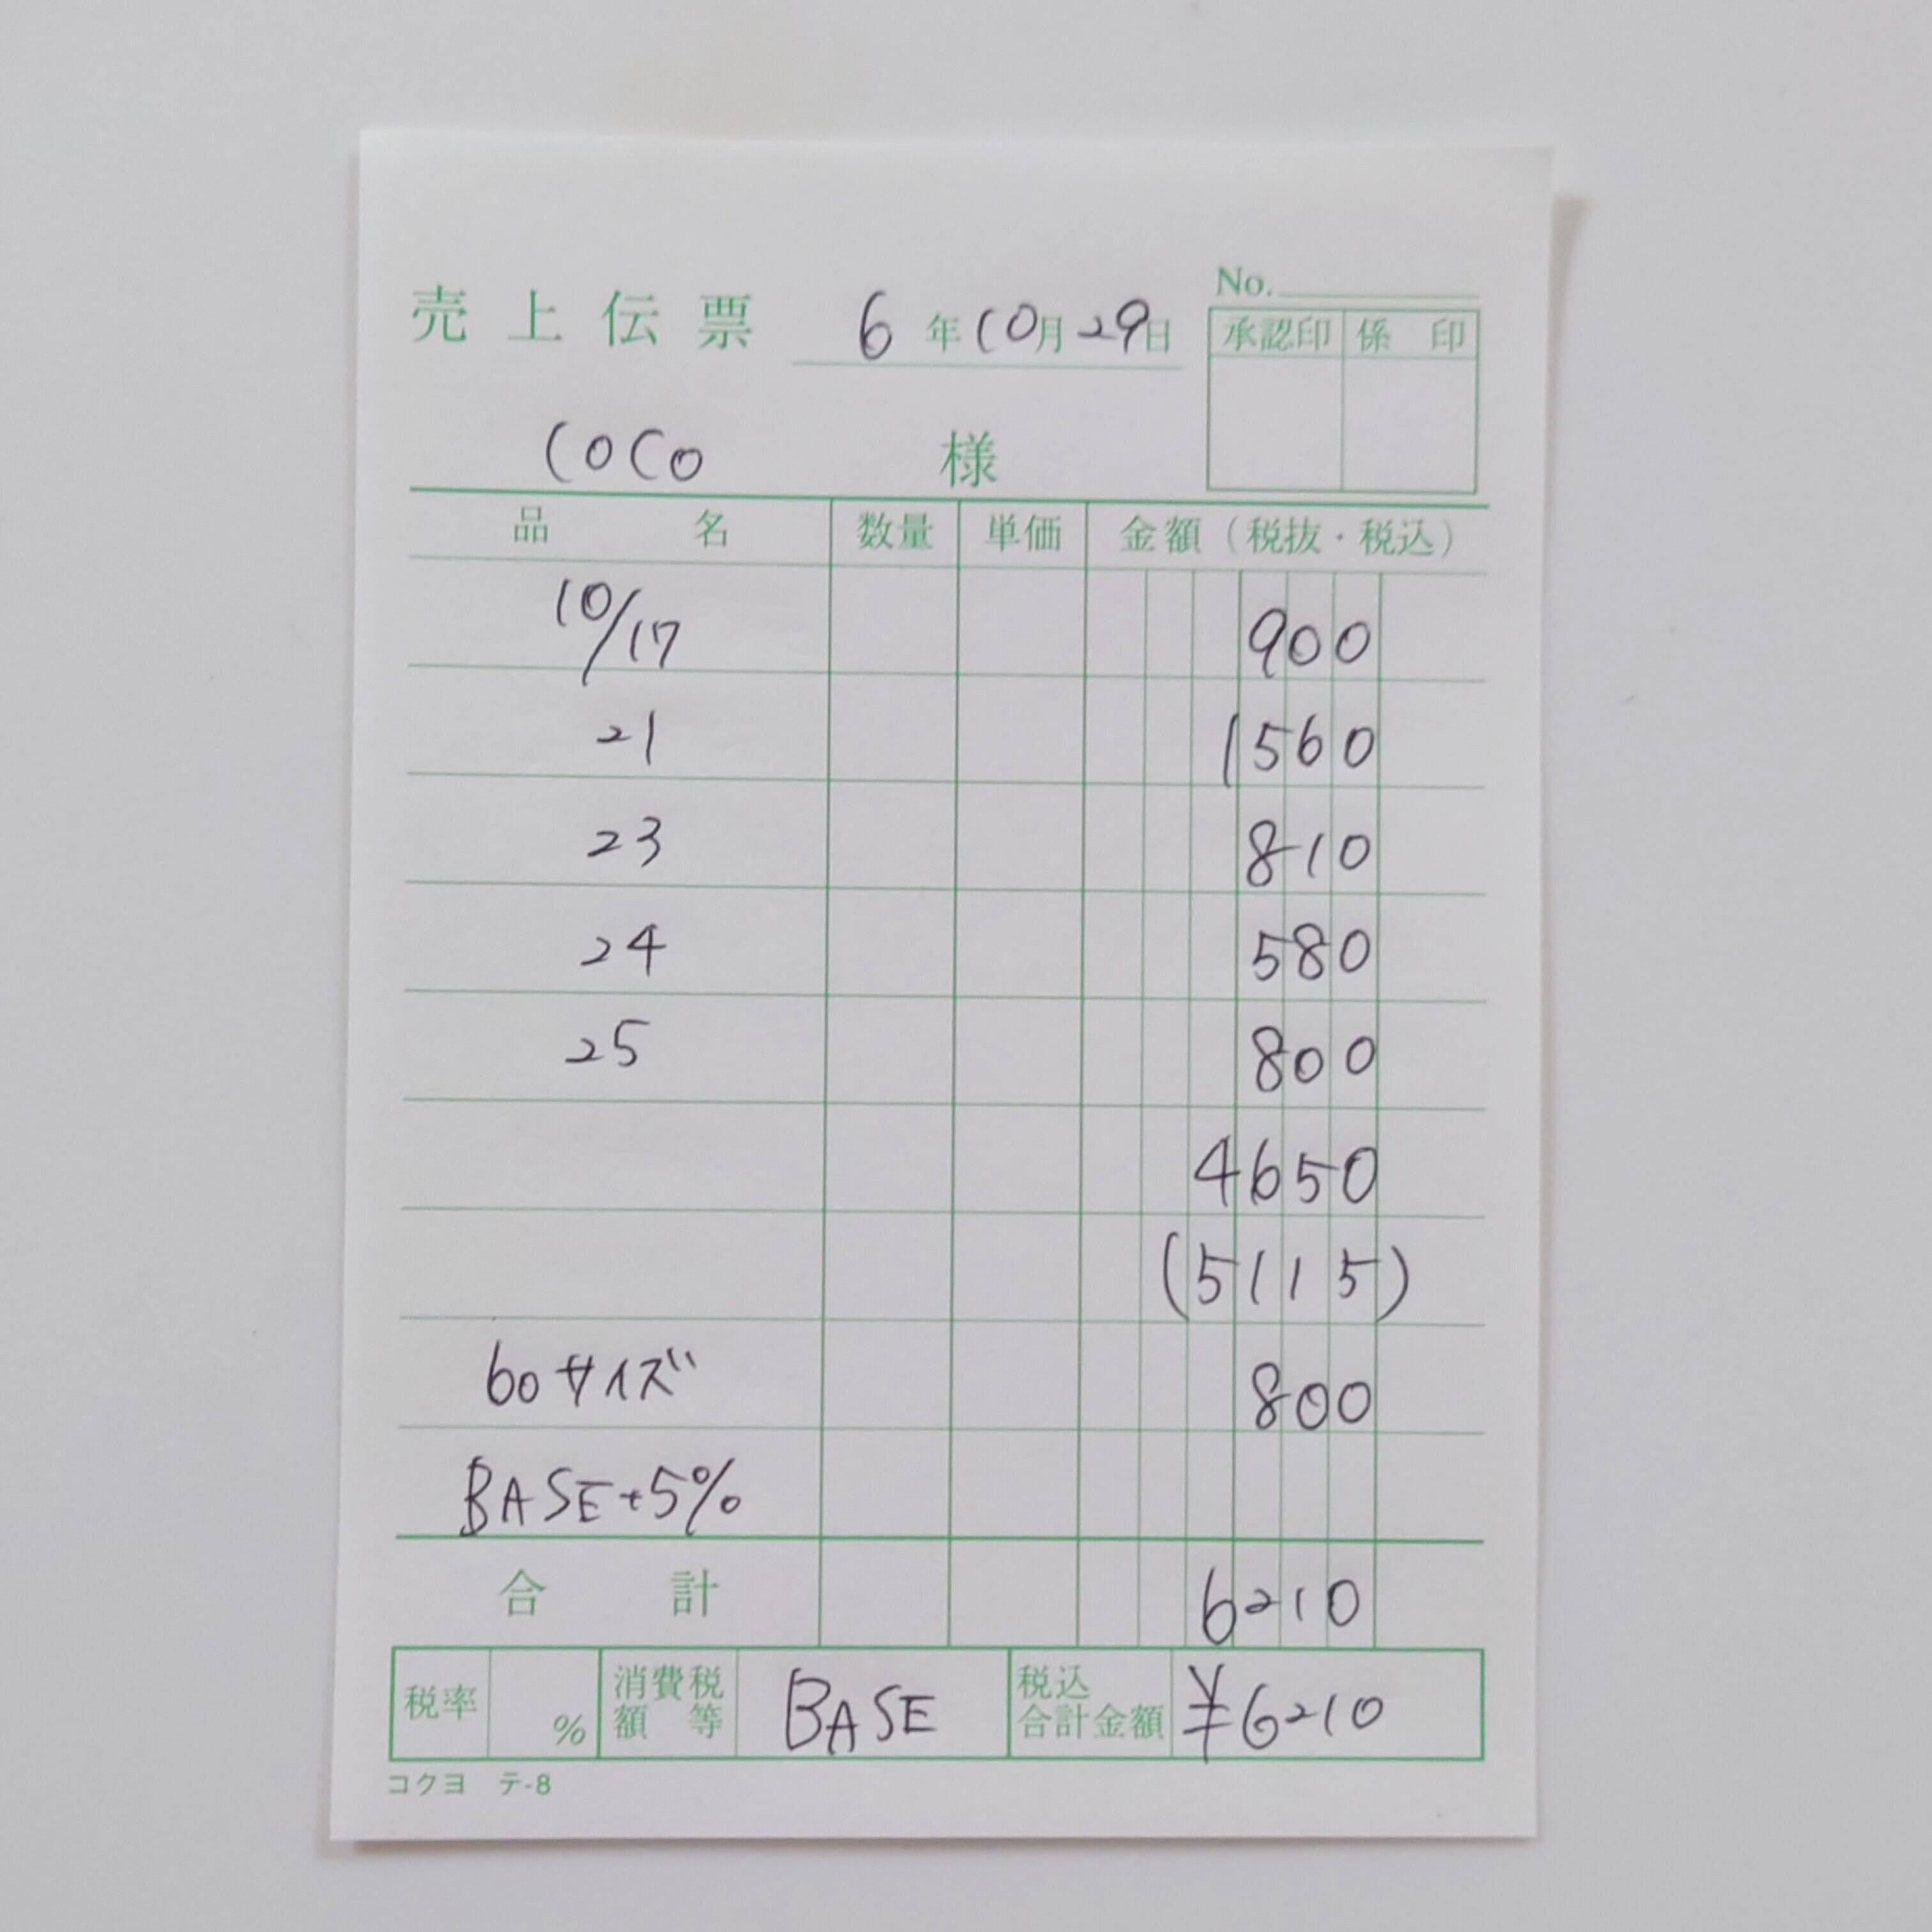 No.
売上伝票 6年10月29日
承認印 係印
COCO 様
品名 数量 単価 金額（税抜・税込）
10/17 900
21 1560
23 810
24 580
25 800
4650
(5115)
60サイズ 800
BASE+5%
合計 6210
税率 % 消費税額等 BASE 税込合計金額 ¥6210
コクヨ テ-8